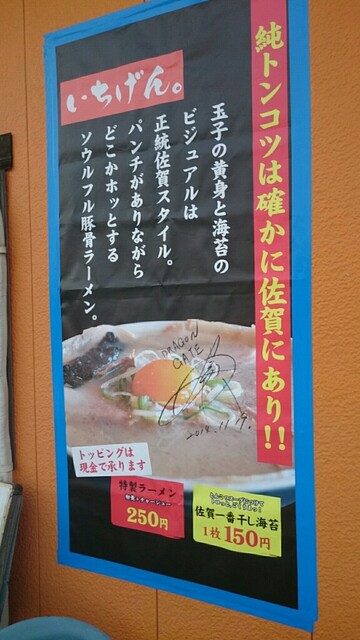 純トンコツは確かに佐賀にあり!!
いちげん。
玉子の黄身と海苔の
ビジュアルは
正統佐賀スタイル。
パンチがありながら
どこかホッとする
ソウルフル豚骨ラーメン。
DRAGON
GATE
2018.11.9.
トッピングは
現金で承ります
特製ラーメン
250円
佐賀一番干し海苔
1枚150円